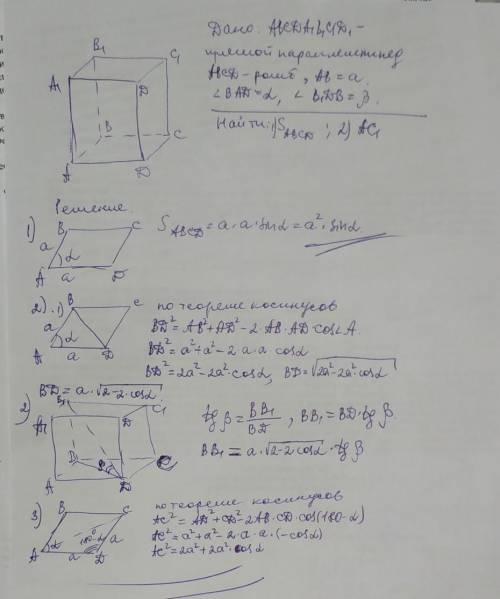 Дано: ABCDA1B1C1D1 -
прямой параллелепипед
ABCD - ромб, AB = a.
∠BAD = α, ∠B1DB = β
Найти: 1) SABCD; 2) AC1
B1
C1
A1
D
B
C
A
D
Решение.
1)
B
C
a
α
A
a
D
SABCD = a·a·sinα = a²·sinα
2). 1)
B
C
a
α
A
a
D
по теореме косинусов
BD² = AB² + AD² - 2·AB·AD·cos∠A.
BD² = a² + a² - 2·a·a·cosα
BD² = 2a² - 2a²·cosα, BD = √2a²-2a²cosα
BD = a·√2-2·cosα
2)
B1
C1
A1
D
B
C
A
D
tg β = BB1/BD, BB1 = BD·tg β
BB1 = a·√2-2cosα·tg β
3)
B
C
α
a
A
a
D
по теореме косинусов
AC² = AD² + CD² - 2AB·CD·cos(180-α)
AC² = a² + a² - 2·a·a·(-cosα)
AC² = 2a² + 2a²·cosα